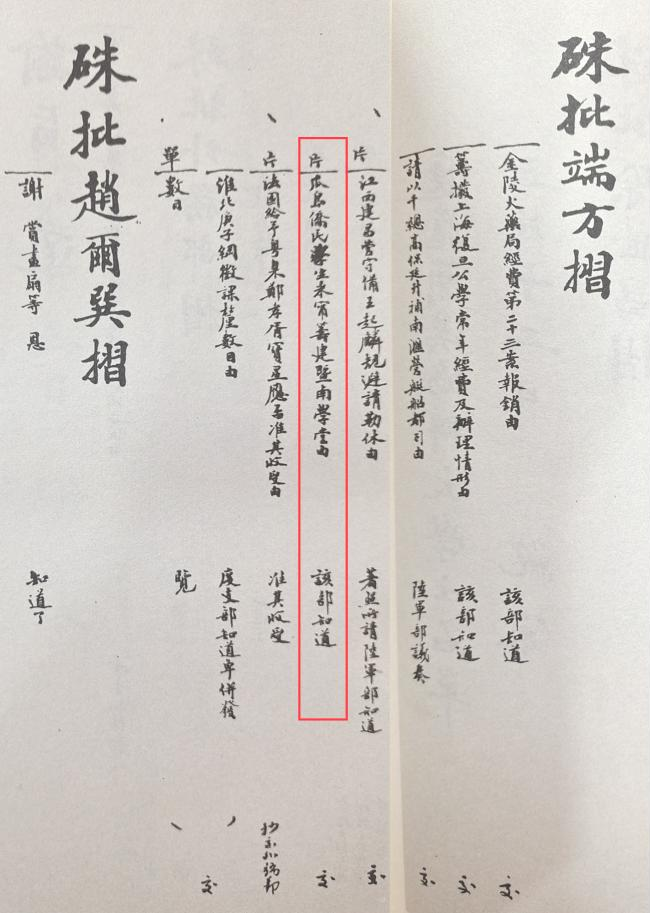 硃批端方摺
金陵火藥局經費第二十三案報銷由 該部知道 交
籌撥上海復旦公學常年經費及辦理情形由 該部知道 交
請以千總高保延升補南滙營艇船都司由 陸軍部議奏 交
片 江西建昌營守備王起麟規避請勒休由 著照所請陸軍部知道 交
片 爪島僑民學生來甯籌建暨南學堂由 該部知道 交
片 法國給予粵臬鄭孝胥寶星應否准其收受由 准其收受
淮北庚子綱徵課釐數目由 度支部知道單併發 交
單 數目 覽
硃批趙爾巽摺
謝 賞畫扇等 恩 知道了